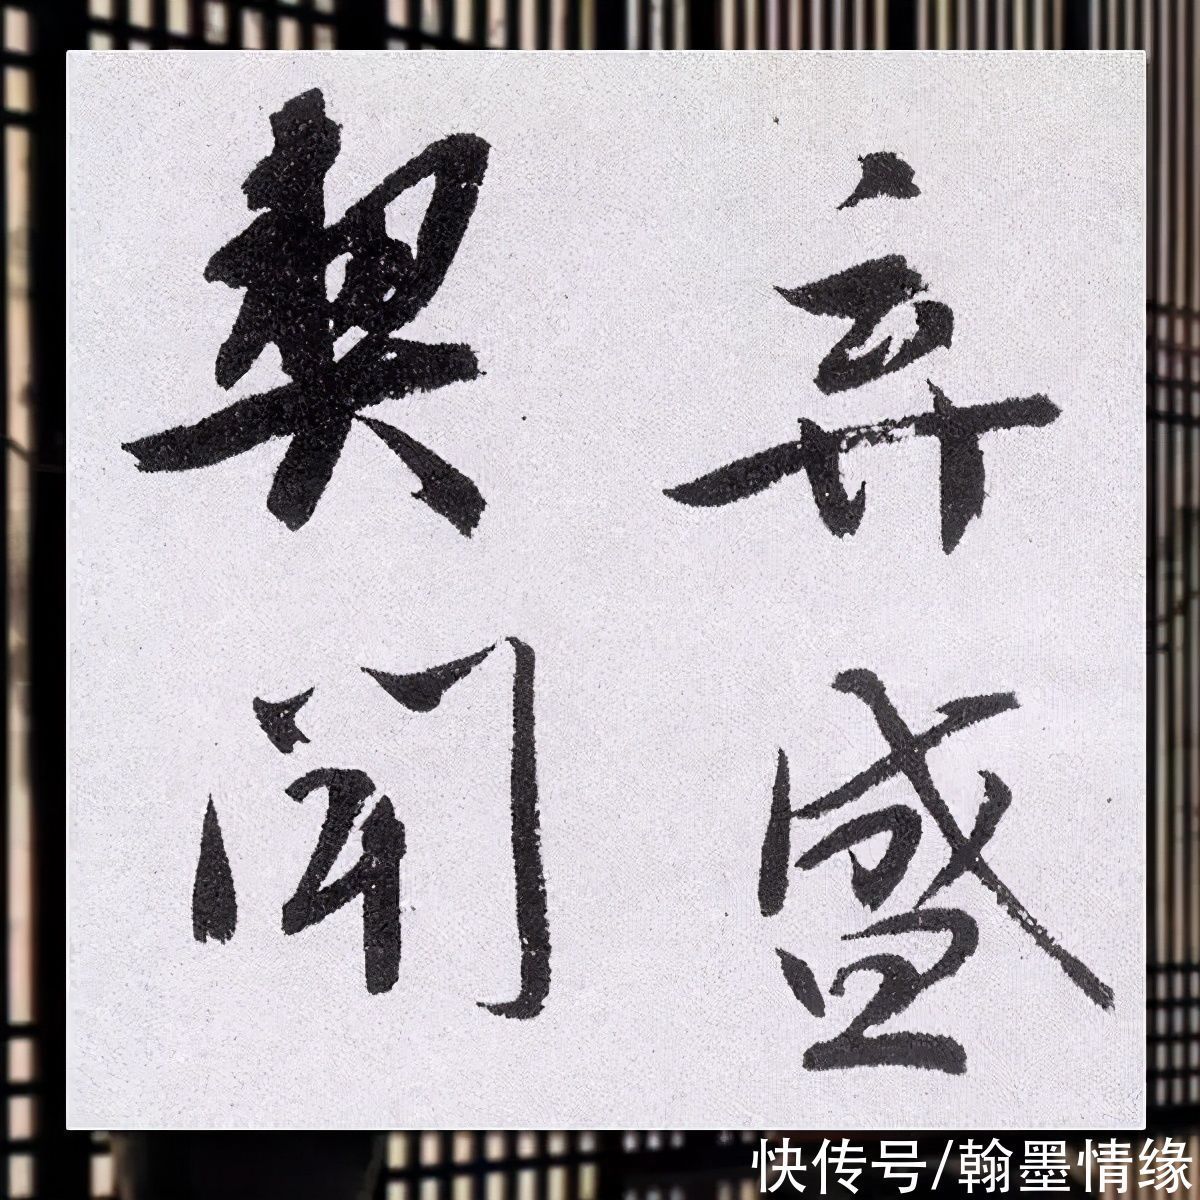 弃盛
契闻
快传号/翰墨情缘